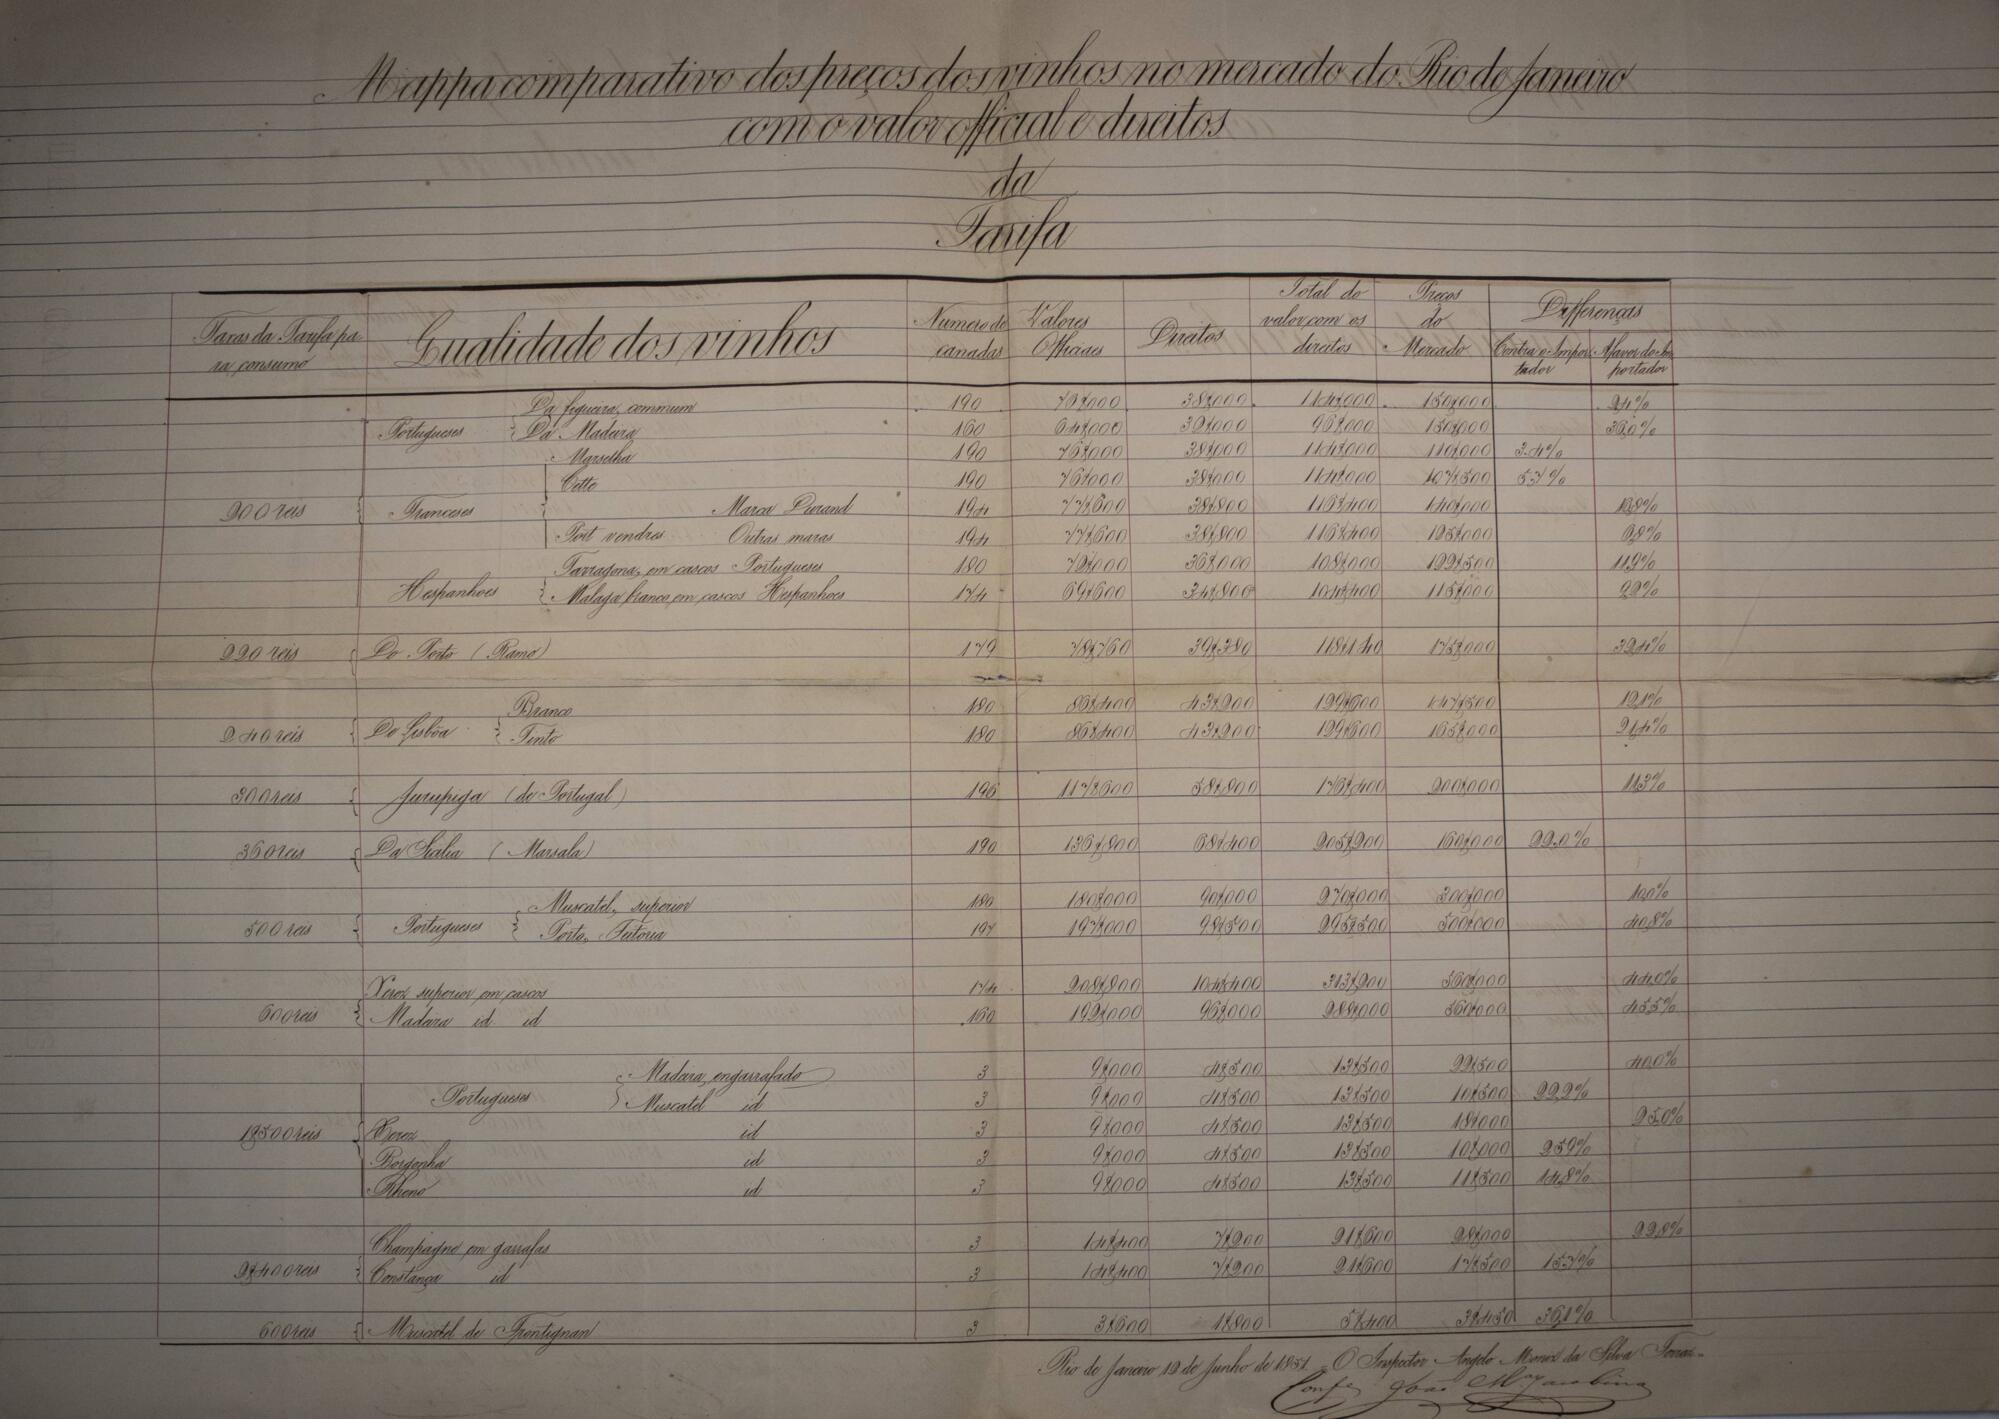 Mappa comparativo dos preços dos vinhos no mercado do Rio de Janeiro
com o valor official e direitos
da
Tarifa
Taxas da Tarifa pa-
ra consumo
Qualidade dos vinhos
Numero de
canadas
Valores
Officiaes
Direitos
Total do
valor com os
direitos
Preços
do
Mercado
Differenças
Contra o Impor-
tador
A favor do Im-
portador
Da figueira, commum 190 38$000 114$000 150$000 24%
Portugueses Da Madeira 160 64$000 32$000 96$000 150$000 36,0%
Marselha 190 76$000 38$000 114$000 110$000 3.4%
Cette 190 76$000 38$000 114$000 107$500 5.7%
200 reis Franceses Marca Durand 194 77$600 38$800 116$400 140$000 16,8%
Port vendres Outras marcas 194 77$600 38$800 116$400 125$000 6,8%
Tarragona, em cascos Portugueses 180 72$000 36$000 108$000 122$500 11,9%
Hespanhoes Malaga branco, em cascos Hespanhoes 174 69$600 34$800 104$400 115$000 9,2%
220 reis Do Porto (Ramo) 179 78$760 39$380 118$140 175$000 32,4%
Branco 180 86$400 43$200 129$600 147$500 12,1%
240 reis De Lisbôa Tinto 180 86$400 43$200 129$600 165$000 21,4%
300 reis Jurupiga (de Portugal) 196 117$600 58$800 176$400 200$000 11,3%
360 reis Da Sicilia (Marsala) 190 136$800 68$400 205$200 160$000 22,0%
Muscatel, superior 180 180$000 90$000 270$000 300$000 10,0%
500 reis Portugueses Porto, Feitoria 197 197$000 98$500 295$500 500$000 40,8%
Xerez superior em cascos 174 208$800 104$400 313$200 560$000 44,0%
600 reis Madeira id id 160 192$000 96$000 288$000 560$000 45,5%
Madeira engarrafado 3 9$000 4$500 13$500 22$500 40,0%
Portugueses Muscatel id 3 9$000 4$500 13$500 10$500 22,2%
1$500 reis Xerez id 3 9$000 4$500 13$500 18$000 25,0%
Borgonha id 3 9$000 4$500 13$500 10$000 25,9%
Rheno id 3 9$000 4$500 13$500 11$500 14,8%
Champagne em garrafas 3 14$400 7$200 21$600 28$000 22,8%
2$400 reis Constança id 3 14$400 7$200 21$600 17$500 15,7%
600 reis Muscatel de Frontignan 3 3$600 1$800 5$400 3$450 36,1%
Rio de Janeiro 12 de Junho de 1851 O Inspector Angelo Moniz da Silva Ferraz
Conf.e João M.